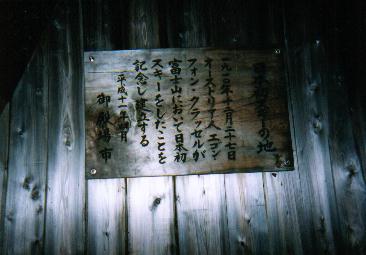 日本初スキーの地
一九一〇年十二月二十七日
オーストリア人 エゴン
フォン・クラッセルが
富士山において日本初
スキーをしたことを
記念し建立する
平成十一年四月
御殿場市